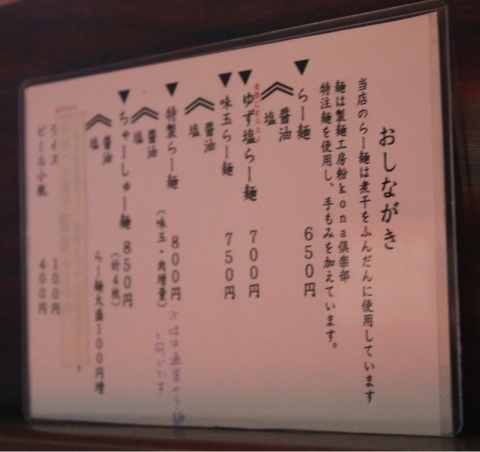 おしながき
当店のらー麺は煮干をふんだんに使用しています
麺は製麺工房粉kona倶楽部
特注麺を使用し、手もみを加えています。
▼らー麺 650円
醤油
塩
▼ゆず塩らー麺 700円
▼味玉らー麺 750円
醤油
塩
▼特製らー麺 800円
(味玉・肉増量)
醤油
塩
▼ちゃーしゅー麺 850円
(計4枚)
醤油
塩
らー麺大盛100円増
ライス 100円
ビール小瓶 400円